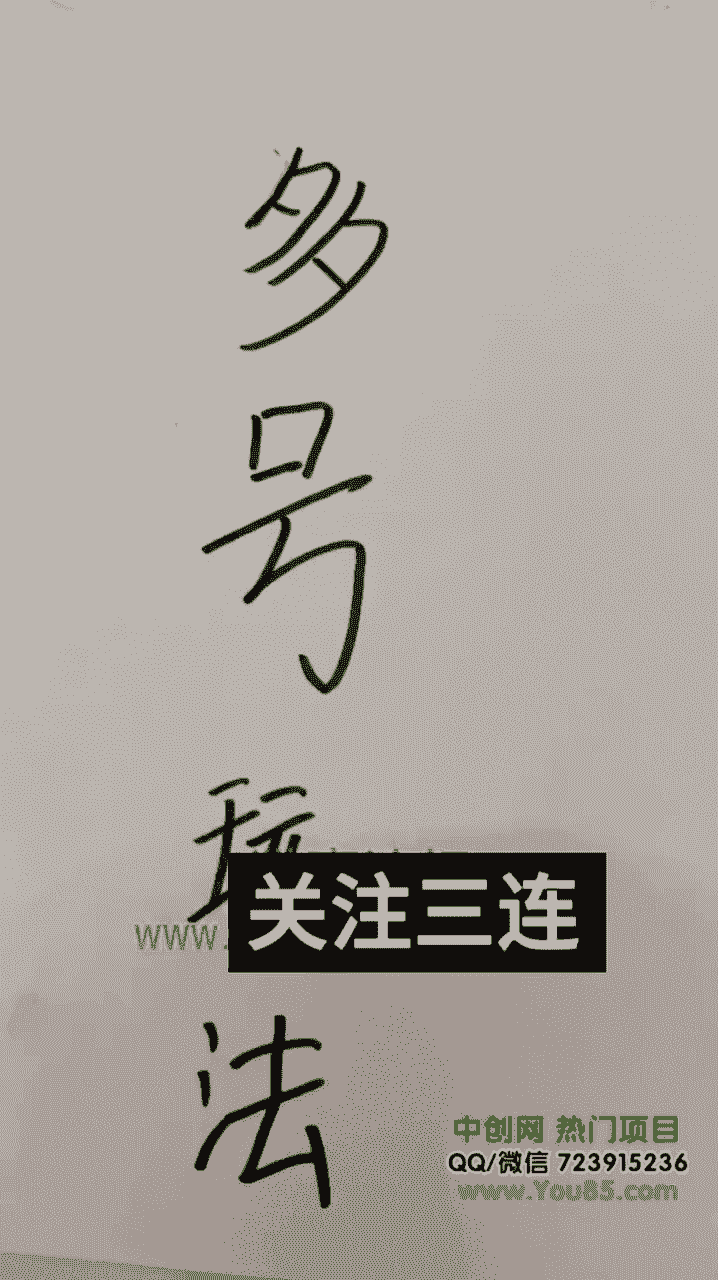 多号玩法
关注三连
www.
中创网 热门项目
QQ/微信 723915236
www.You85.com